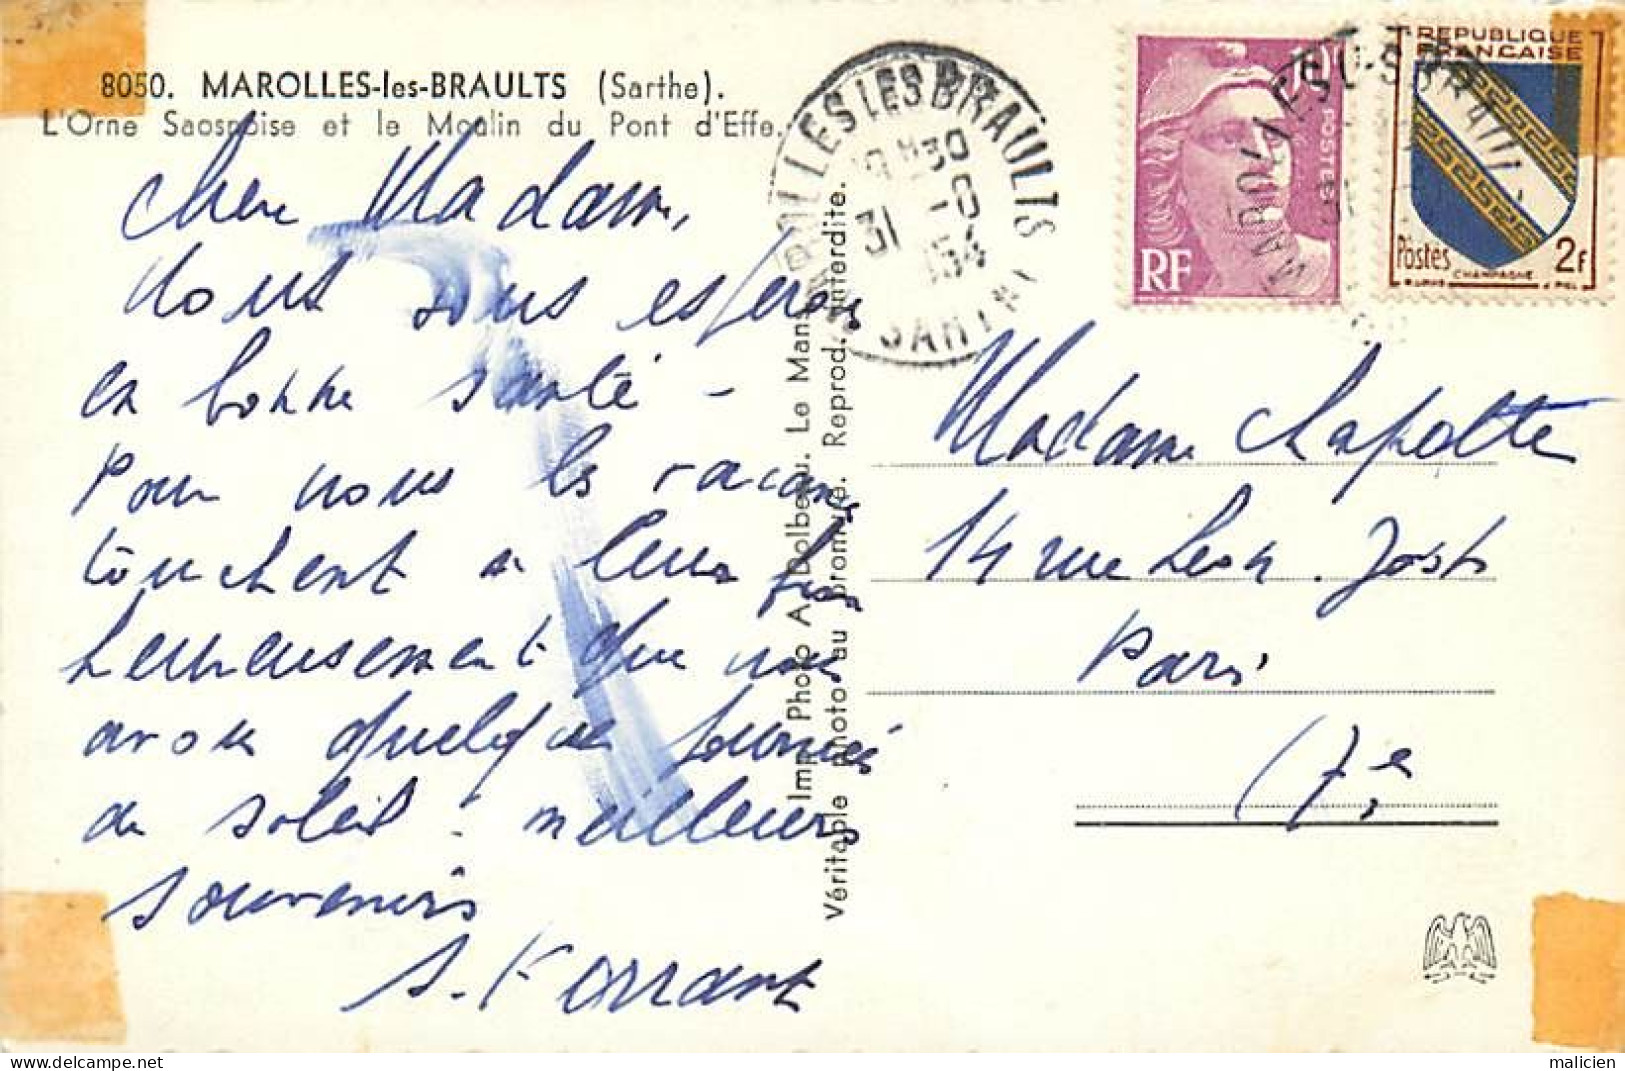 8050. MAROLLES-les-BRAULTS (Sarthe).
L'Orne Saosnoise et le Moulin du Pont d'Effe.
Chère Madame,
Nous vous espérons
en bonne santé -
Pour nous les vacances
touchent à leur fin
heureusement que nous
avons quelques journées
de soleil. meilleurs
souvenirs
S. Forrant
Imp. Photo A. Dolbeau. Le Mans
Véritable photo au bromure. Reprod. interdite.
MAROLLES LES BRAULTS
31
SARTHE
RF
REPUBLIQUE
FRANÇAISE
Postes
2F
CHAMPAGNE
Madame Lapotte
14 rue Léon. Jost
Paris
(7e
malicien